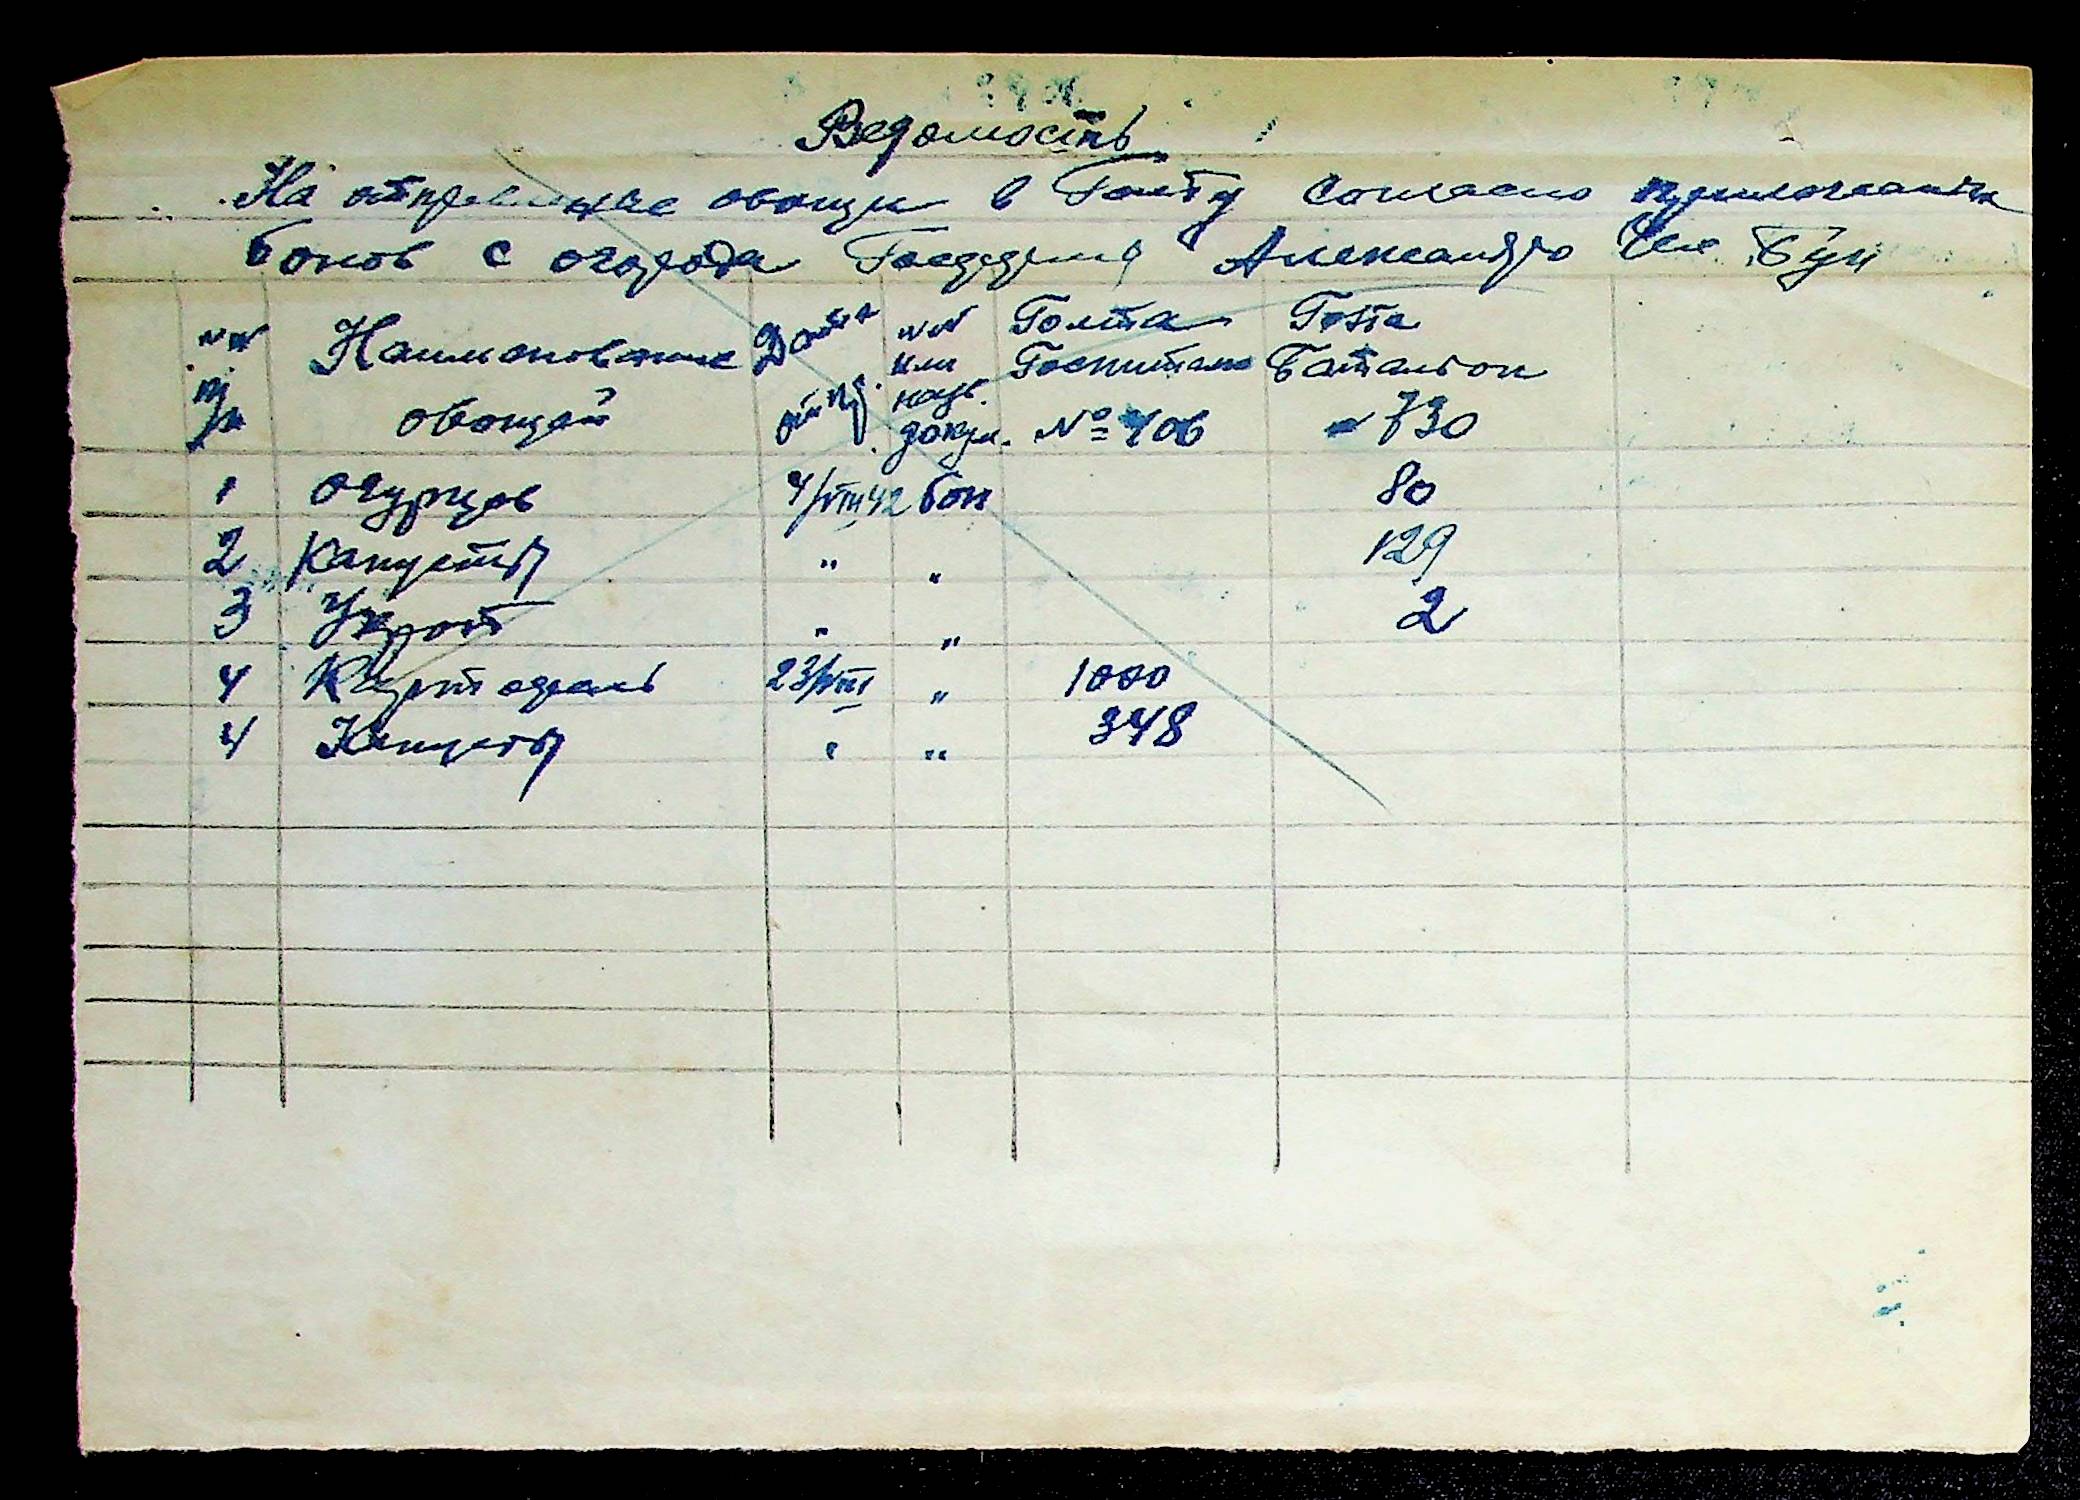 Ведомость
На отправление овощи в Голту Согласно приложенных
бонов с огорода Александро
№№ п/п Наименование овощей Дата отпр. №№ или назв. докум. Голта Госпиталь № 406 Гота Баталион 730
1 Огурцов 4/VIII 42 бон 80
2 Капусты " " 129
3 Укроп " " 2
4 Картофель 23/VIII " 1000
4 Капусты " " 348